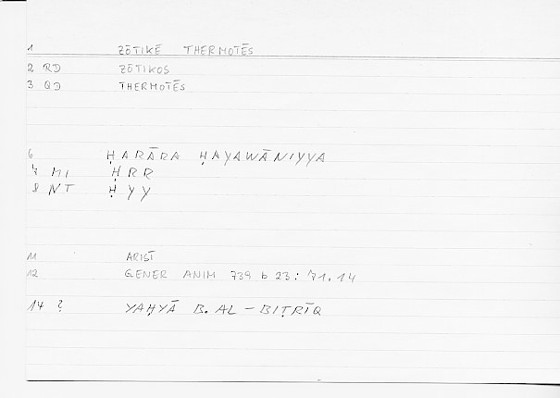 1 ZŌTIKĒ THERMOTĒS
2 RD ZŌTIKOS
3 QD THERMOTĒS
6 ḤARĀRA ḤAYAWĀNIYYA
7 MI ḤRR
8 NT ḤYY
11 ARIST
12 GENER ANIM 739 b 23 : 71.14
14 ? YAḤYĀ B. AL-BIṬRĪQ